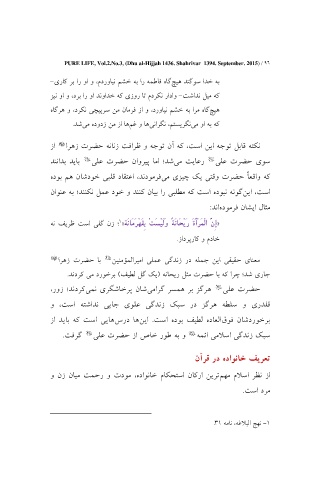 PURE LIFE, Vol.2.No.3, (Dhu al-Hijjah 1436. Shahrivar 1394. September. 2015) / ۹۶
به خدا سوگند هیچ‌گاه فاطمه را به خشم نیاوردم، و او را بر کاری-
که میل نداشت- وادار نکردم تا روزی که خداوند او را برد، و او نیز
هیچ‌گاه مرا به خشم نیاورد، و از فرمان من سرپیچی نکرد، و هرگاه
که به او می‌نگریستم، نگرانی‌ها و غم‌ها از من زدوده می‌شد.
نکته قابل توجه این است، که آن توجه و ظرافت زنانه حضرت زهرا از
سوی حضرت علی رعایت می‌شد؛ اما پیروان حضرت علی باید بدانند
که واقعاً حضرت وقتی یک چیزی می‌فرمودند، اعتقاد قلبی خودشان هم بوده
است، این‌گونه نبوده است که مطلبی را بیان کنند و خود عمل نکنند؛ به عنوان
مثال ایشان فرموده‌اند:
«إِنَّ الْمَرْأَةَ رَيْحَانَةٌ وَلَيْسَتْ بِقَهْرَمَانَةٍ»۱؛ زن گلی است ظریف نه
خادم و کارپرداز.
معنای حقیقی این جمله در زندگی عملی امیرالمؤمنین با حضرت زهرا
جاری شد؛ چرا که با حضرت مثل ریحانه (یک گل لطیف) برخورد می کردند.
حضرت علی هرگز بر همسر گرامی‌شان پرخاشگری نمی‌کردند؛ زور،
قلدری و سلطه هرگز در سبک زندگی علوی جایی نداشته است، و
برخوردشان فوق‌العاده لطیف بوده است. این‌ها درس‌هایی است که باید از
سبک زندگی اسلامی ائمه و به طور خاص از حضرت علی گرفت.
تعریف خانواده در قرآن
از نظر اسلام مهم‌ترین ارکان استحکام خانواده، مودت و رحمت میان زن و
مرد است.
۱- نهج البلاغه، نامه ۳۱.